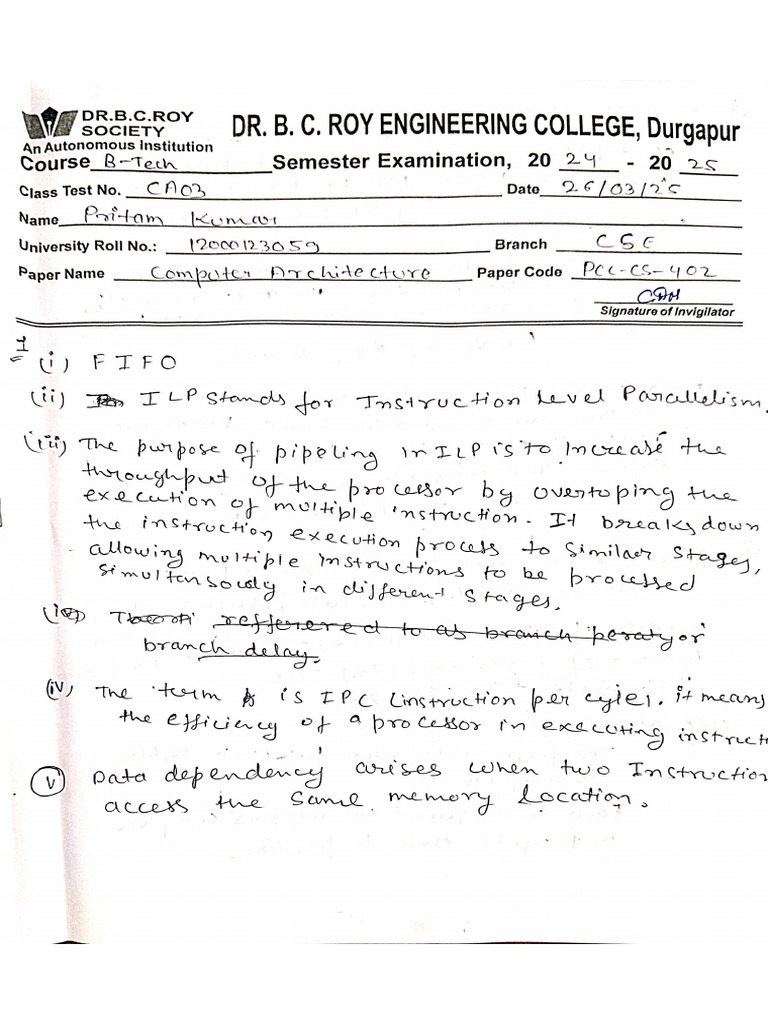 DR.B.C.ROY
SOCIETY
An Autonomous Institution
DR. B. C. ROY ENGINEERING COLLEGE, Durgapur
Course B-Tech Semester Examination, 20 24 - 20 25
Class Test No. CA03 Date 26/03/25
Name Pritam Kumar
University Roll No.: 12000123059 Branch CSE
Paper Name Computer Architecture Paper Code PCC-CS-402
Signature of Invigilator
1
(i) FIFO
(ii) ILP Stands for Instruction Level Parallelism.
(iii) The purpose of pipeling in ILP is to increase the
throughput of the processor by overtoping the
execution of multiple instruction. It breaks down
the instruction execution process to similaer stages,
allowing multiple instructions to be processed
simultansously in different stages.
reffered to as branch or
branch delay.
(iv) The term is IPC (instruction per cycle). it means
the efficiency of a processor in executing instructi
(v) Data dependency arises when two Instruction
access the same memory location.